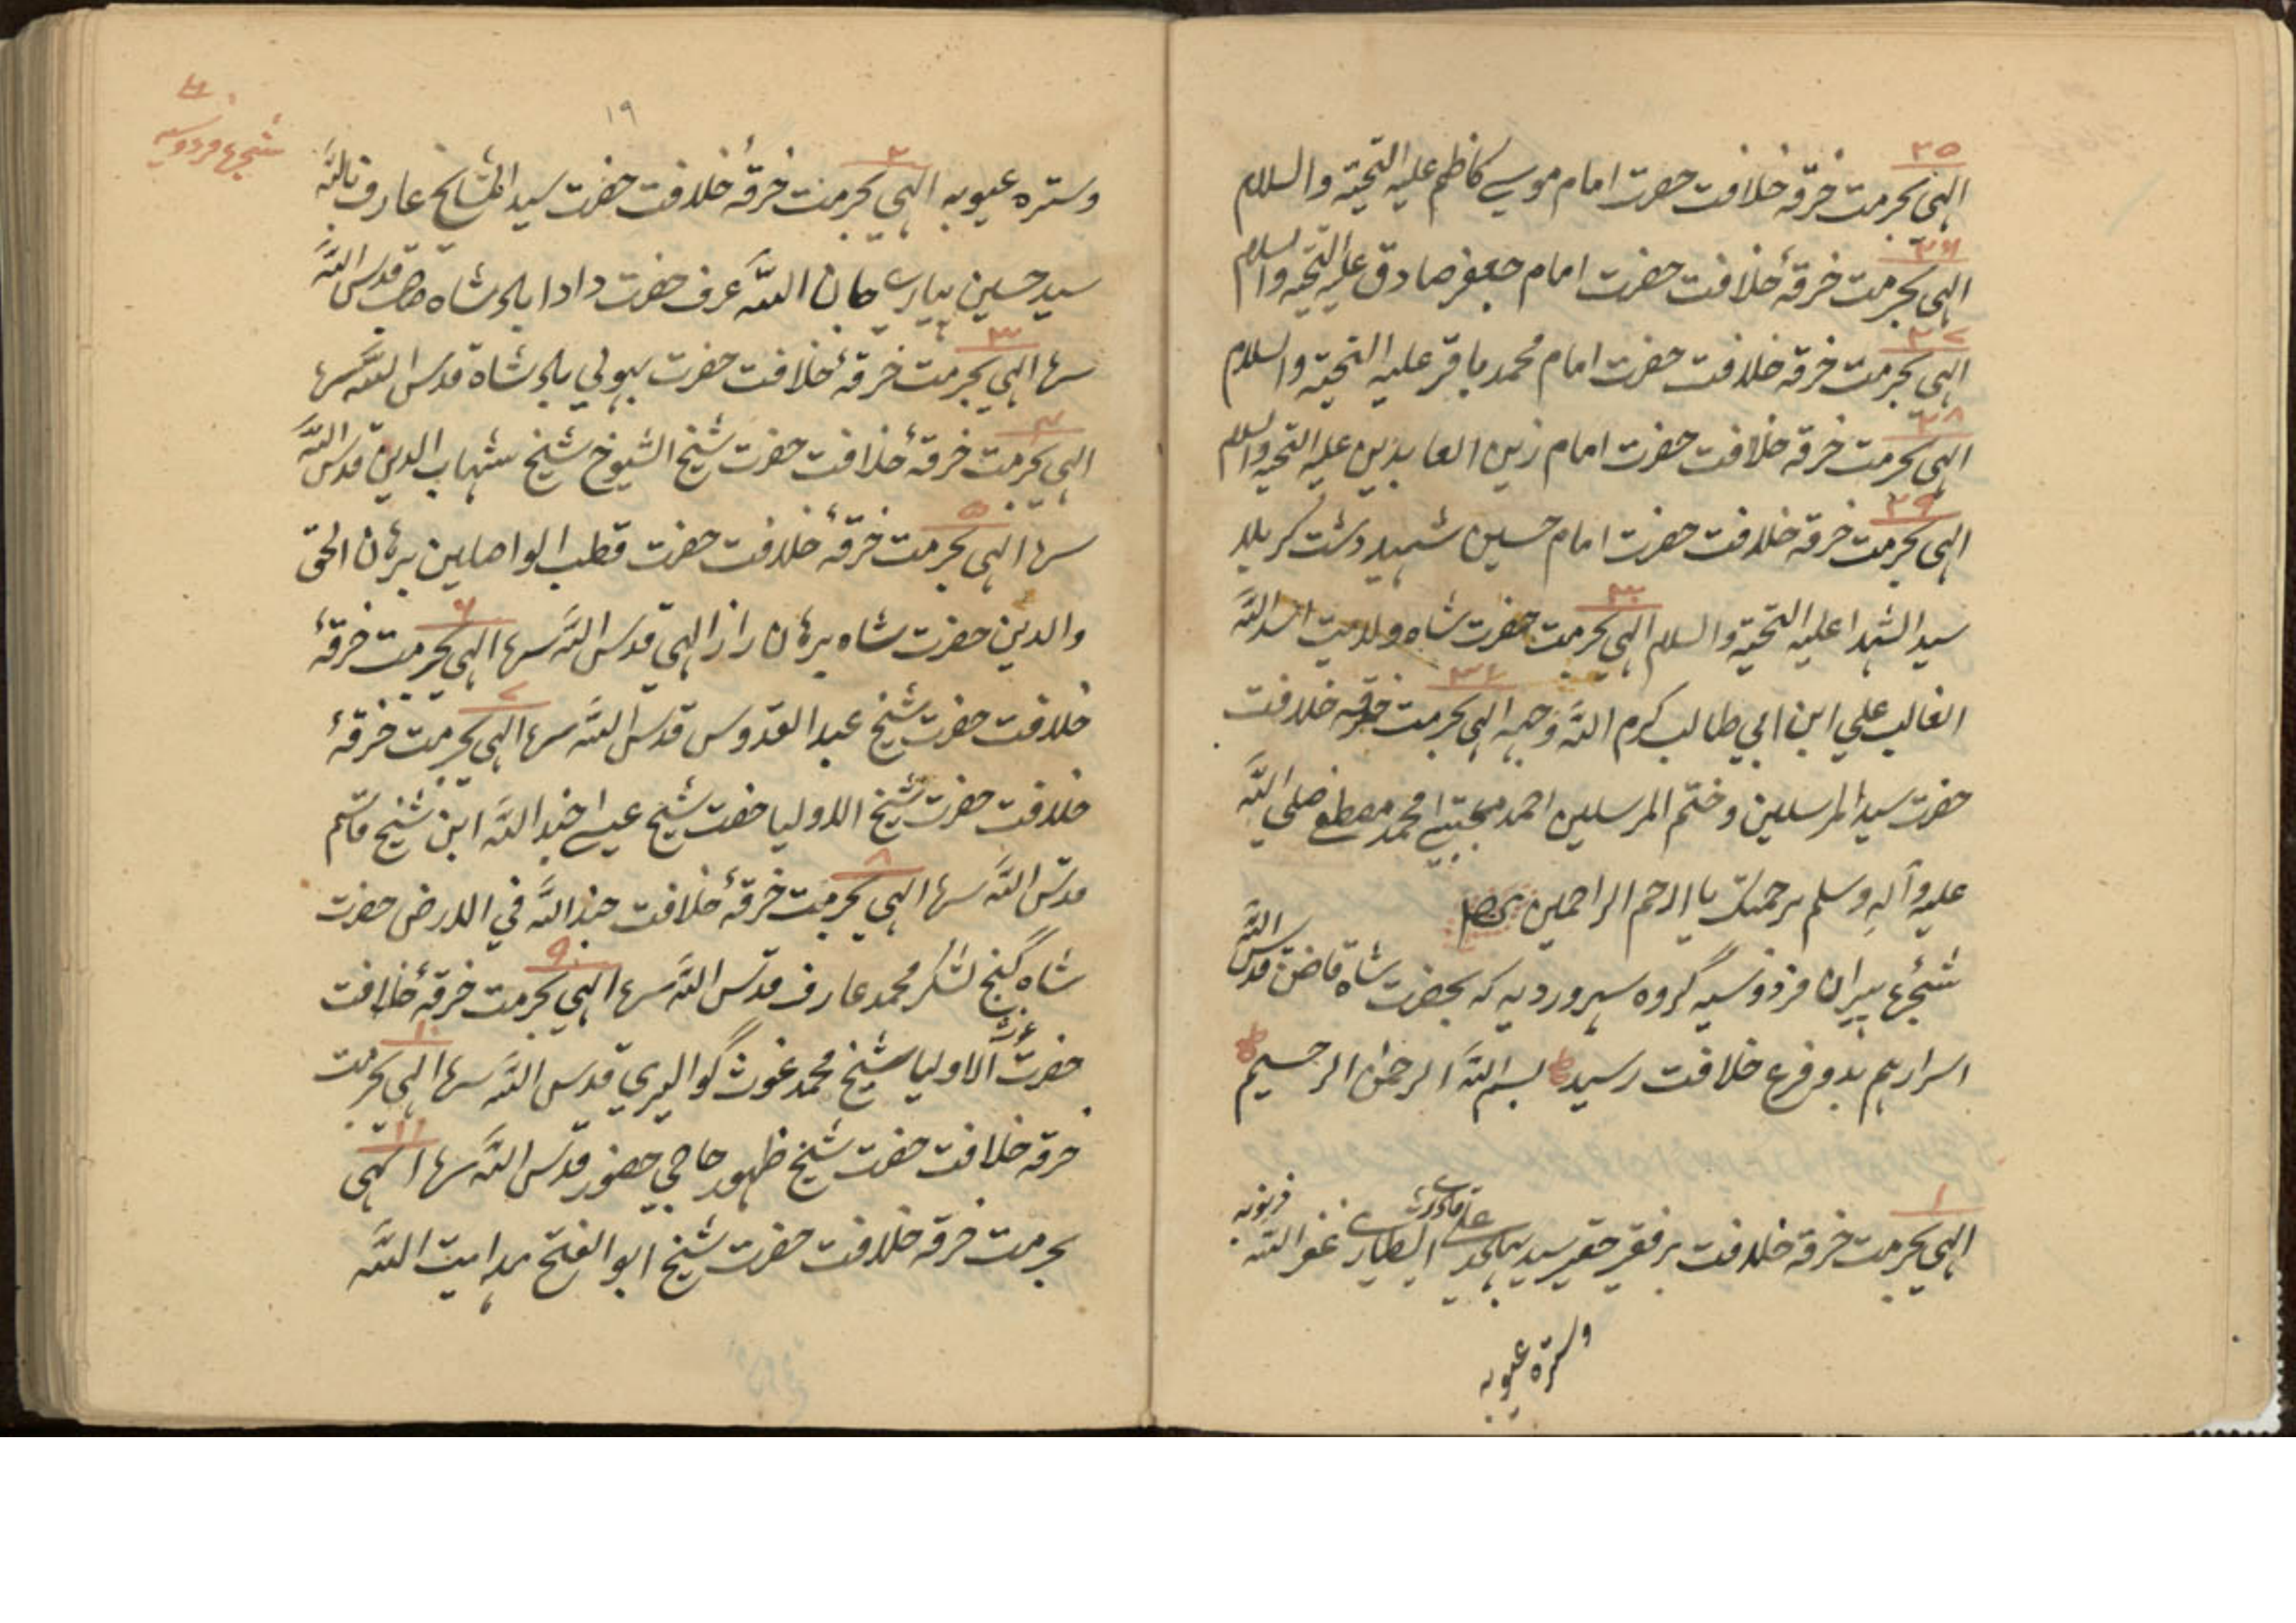 ۲۵
الٰہی بحرمت خرقہ خلافت حضرت امام موسے کاظم علیہ التحیتہ والسلام
۲۶
الٰہی بحرمت خرقۂ خلافت حضرت امام جعفر صادق علیہ التحیہ والسلام
۲۷
الٰہی بحرمت خرقہ خلافت حضرت امام محمد باقر علیہ التحیتہ والسلام
۲۸
الٰہی بحرمت خرقہ خلافت حضرت امام زین العابدین علیہ التحیہ والسلام
۲۹
الٰہی بحرمت خرقہ خلافت حضرت امام حسین شہید دشت کربلا
۳۰
سید الشہدا علیہ التحیتہ والسلام الٰہی بحرمت حضرت شاہ ولایت اسد اللہ
۳۱
الغالب علي ابن ابي طالب کرم اللہ وجہہ الٰہی بحرمت خرقہ خلافت
حضرت سید المرسلین و ختم المرسلین احمد مجتبےٰ محمد مصطفےٰ صلي اللہ
علیہ وآلہ وسلم برحمتک یا ارحم الراحمین
شجرۂ پیران فردوسیہ گروہ سہروردیہ کہ بحضرت شاہ قاضن قدس اللہ
اسرارہم بدو فرع خلافت رسید بسم اللہ الرحمٰن الرحیم
۱
الٰہی بحرمت خرقہ خلافت بر فقیر حقیر سید علي قادری الشطاری غفر اللہ ذنوبہ
وسترہ عیوبہ
شجرۂ فردوسیہ
۱۹
۲
وسترہ عیوبہ الٰہی بحرمت خرقۂ خلافت حضرت سید المشایخ عارف باللہ
سید حسین پیارے جان اللہ عرف حضرت دادا بلد شاہ صاحب قدس اللہ
۳
سرہ الٰہی بحرمت خرقۂ خلافت حضرت بہولي بلد شاہ قدس اللہ سرہ
۴
الٰہی بحرمت خرقۂ خلافت حضرت شیخ الشیوخ شیخ شہاب الدین قدس اللہ
۵
سرہ الٰہی بحرمت خرقۂ خلافت حضرت قطب الواصلین برہان الحق
۶
والدین حضرت شاہ برہان راز الٰہی قدس اللہ سرہ الٰہی بحرمت خرقۂ
۷
خلافت حضرت شیخ عبد القدوس قدس اللہ سرہ الٰہی بحرمت خرقۂ
خلافت حضرت شیخ الاولیا حضرت شیخ عیسےٰ جند اللہ ابن شیخ قاسم
۸
قدس اللہ سرہ الٰہی بحرمت خرقۂ خلافت جند اللہ في الارض حضرت
۹
شاہ گنج لشکر محمد عارف قدس اللہ سرہ الٰہی بحرمت خرقۂ خلافت
۱۰
حضرت غوث الاولیا شیخ محمد غوث گوالیري قدس اللہ سرہ الٰہی بحرمت
۱۱
خرقہ خلافت حضرت شیخ ظہور حاجي حضور قدس اللہ سرہ الٰہی
بحرمت خرقہ خلافت حضرت شیخ ابو الفتح ہدایت اللہ